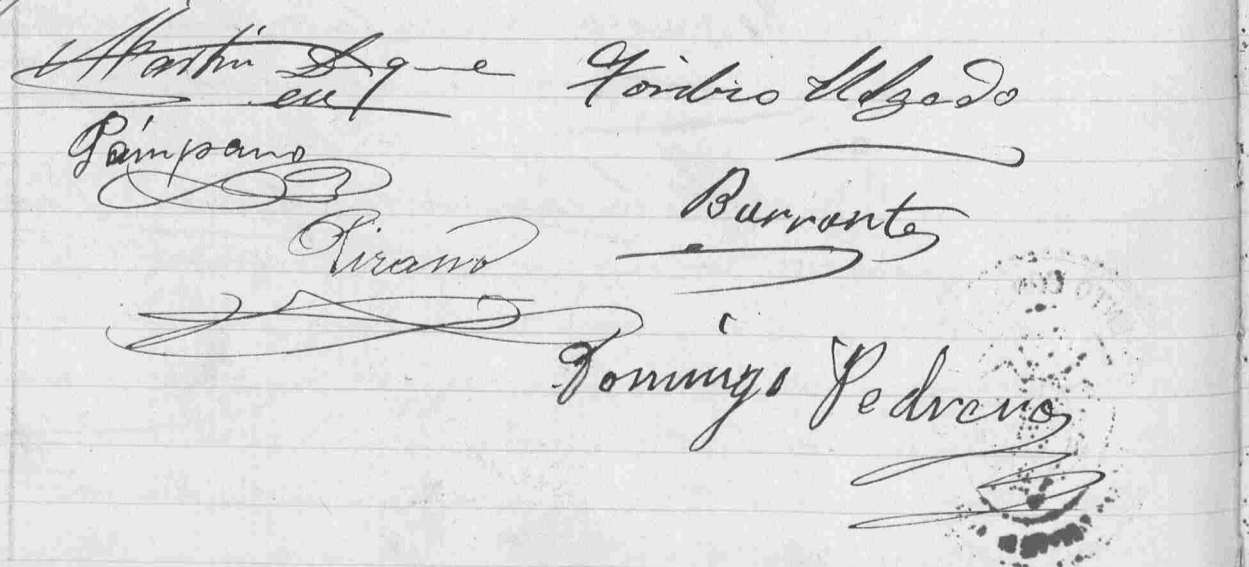 Martin Duque Toribio Alzado
en
Pámpano
Barrantes
Pirano
Domingo Pedrero